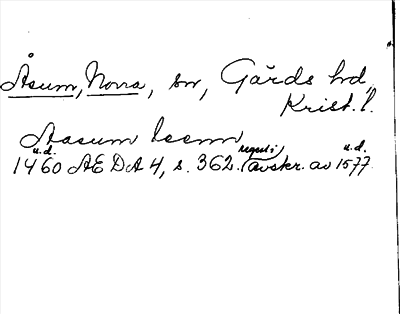 Åsum, Norra, sn, Gärds hd,
Krist. l.
Aasum
u.d. u.d.
1460 AEDA 4, s. 362. (avskr. av 1577.